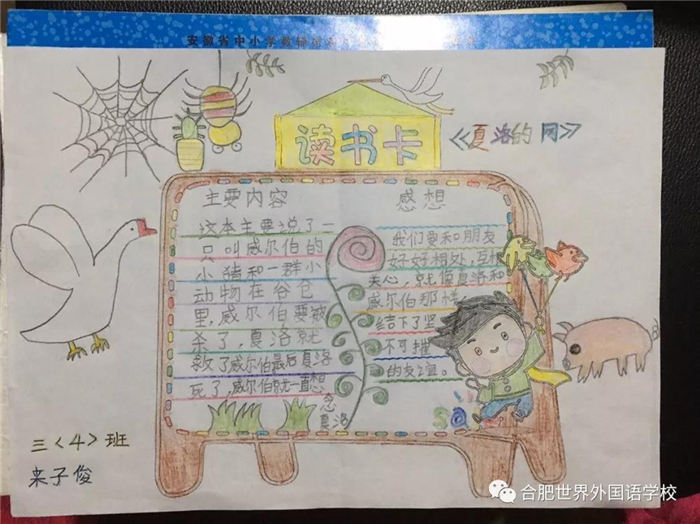 安徽省中小学教辅
读书卡
《夏洛的网》
主要内容
这本主要说了一
只叫威尔伯的
小猪和一群小
动物在谷仓
里,威尔伯要被
杀了,夏洛就
救了威尔伯最后夏洛
死了,威尔伯就一直想
念
夏洛
感想
我们要和朋友
好好相处,互相
关心,就像夏洛和
威尔伯那样
结下了坚
不可摧
的友谊。
三〈4〉班
来子俊
合肥世界外国语学校